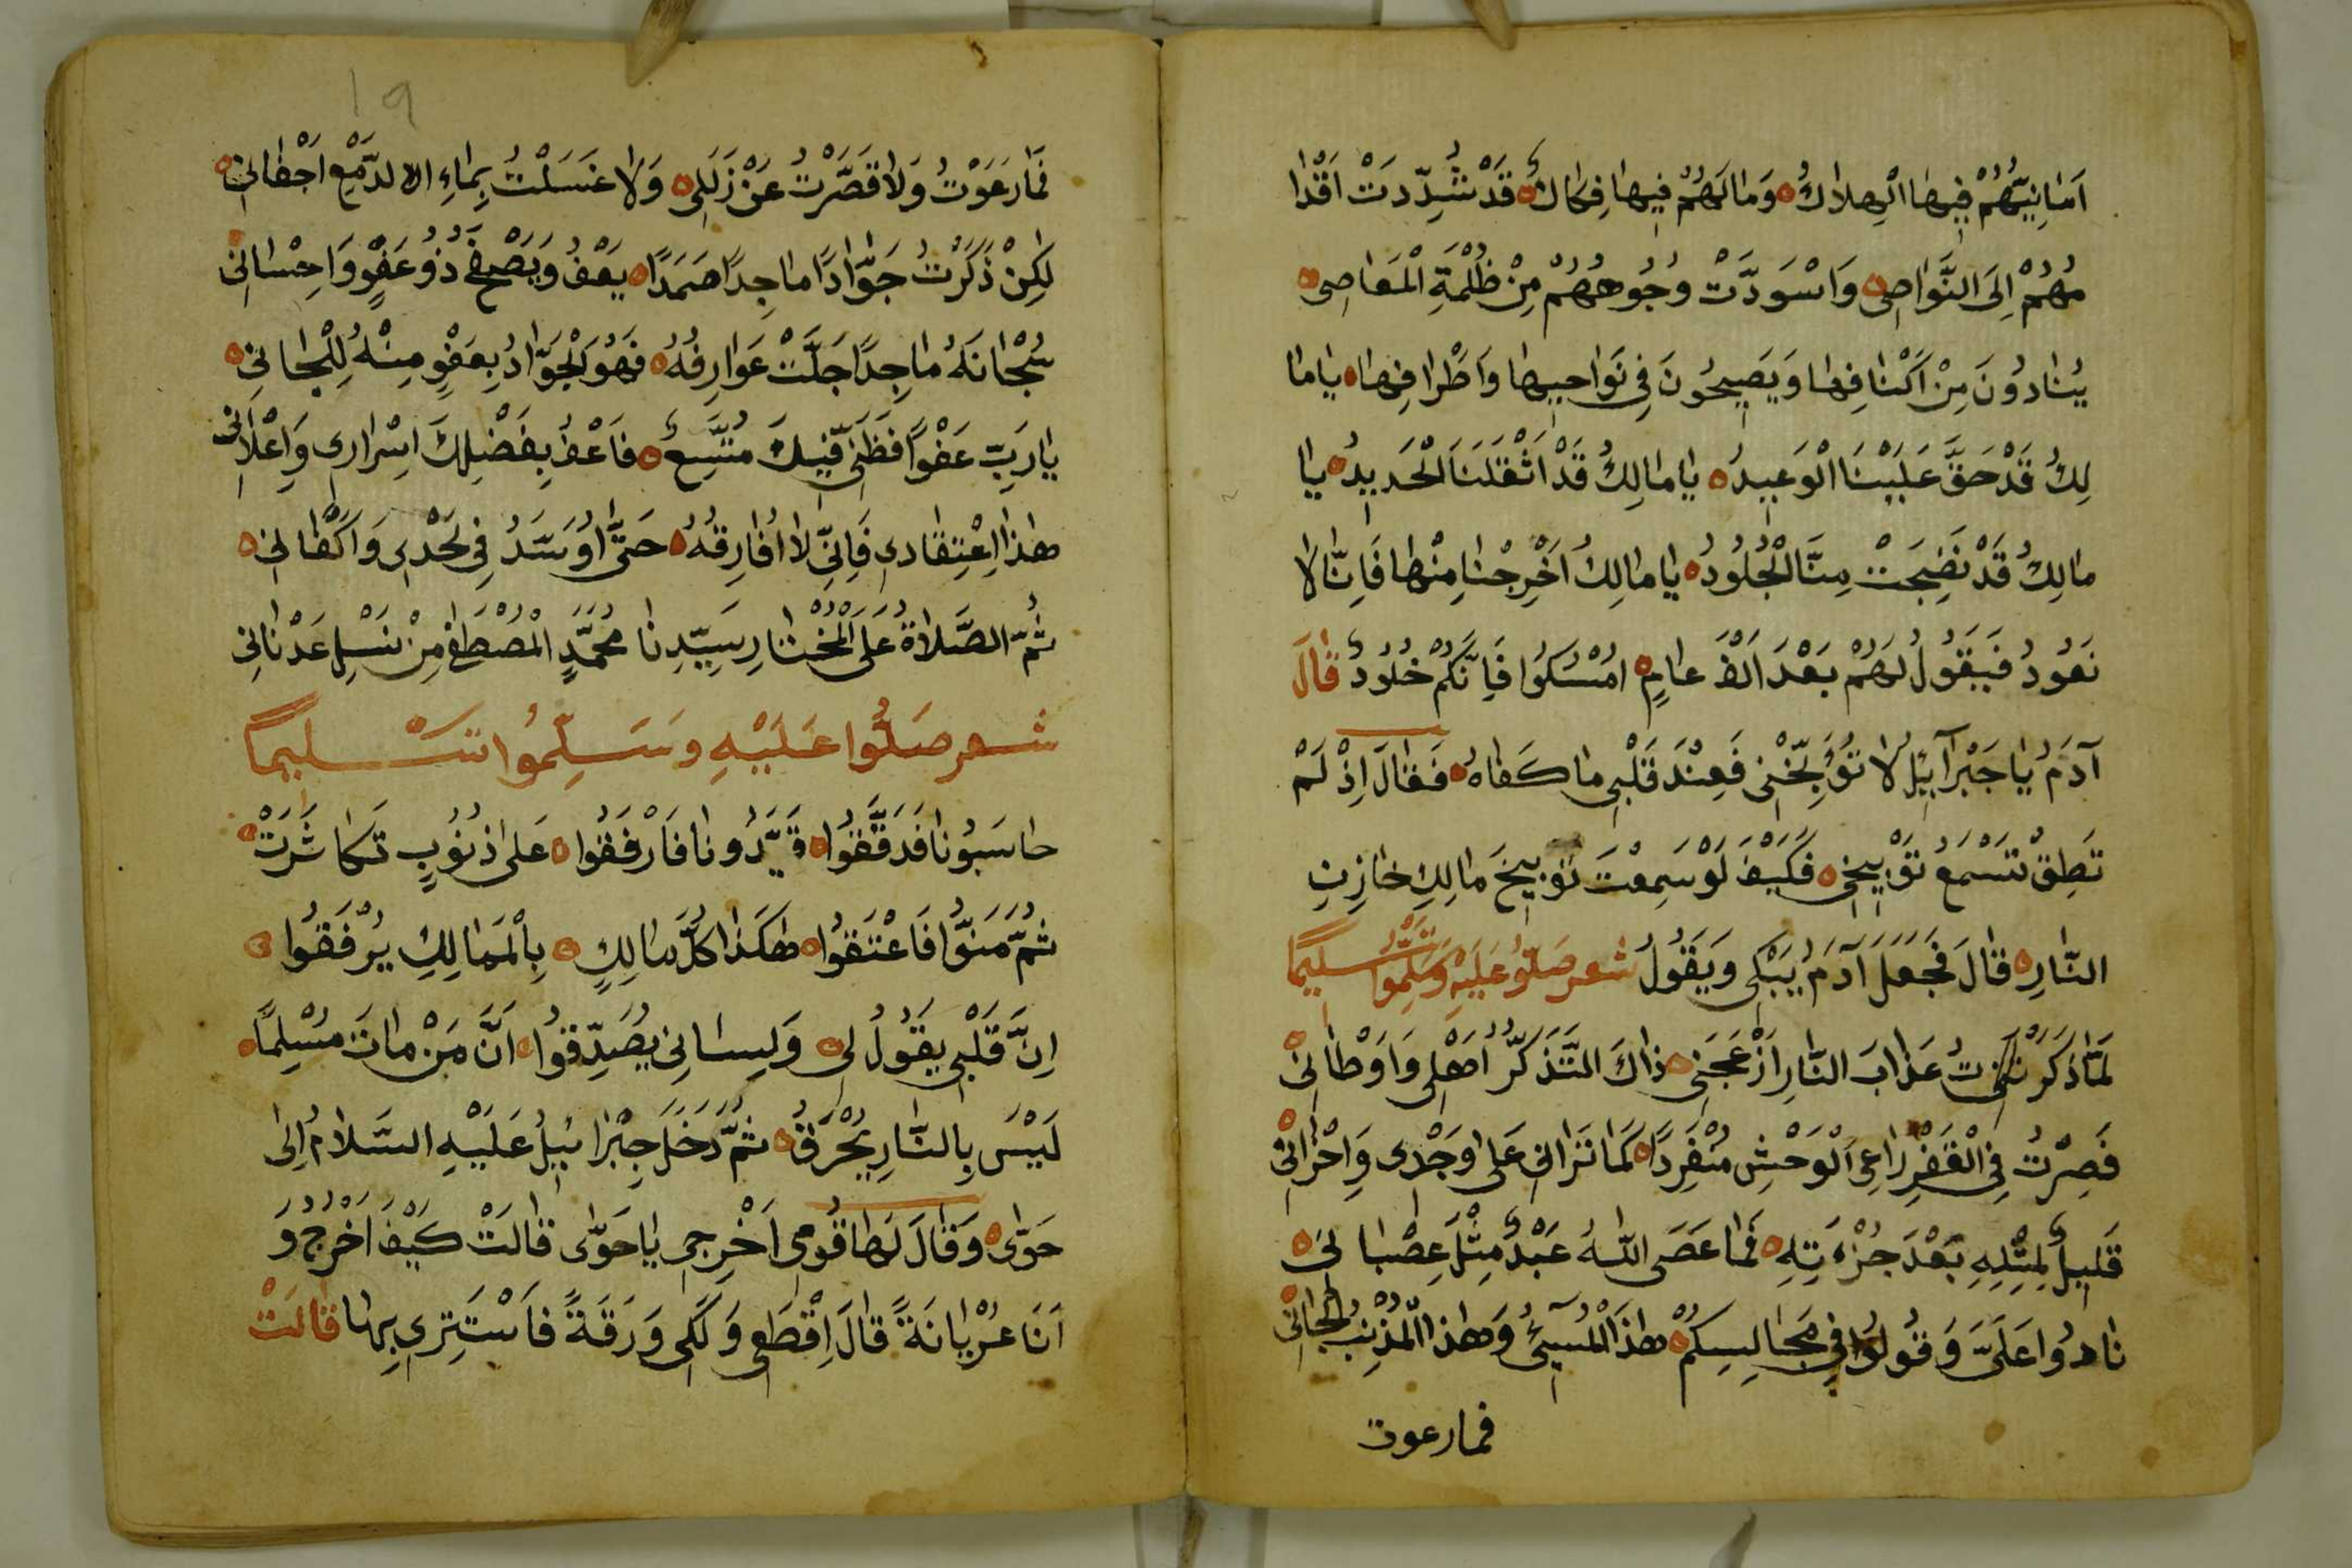 اَمَانِيُّهُمْ فِيهَا الْهِلَاكُ ه وَمَا لَهُمْ فِيهَا فِكَاكٌ ه قَدْ شُدِّدَتْ اَقْدَا
مُهُمْ اِلَى النَّوَاصِى ه وَاسْوَدَّتْ وُجُوهُهُمْ مِنْ ظُلْمَةِ الْمَعَاصِى ه
يُنَادُونَ مِنْ اَكْنَافِهَا وَيَصِيحُونَ فِى نَوَاحِيهَا وَاَطْرَافِهَا ه يَامَا
لِكُ قَدْ حَقَّ عَلَيْنَا الْوَعِيدُ ه يَا مَالِكُ قَدْ اَثْقَلَنَا الْحَدِيدُ ه يَا
مَالِكُ قَدْ نَضِجَتْ مِنَّا الْجُلُودُ ه يَا مَالِكُ اَخْرِجْنَا مِنْهَا فَاِنَّا لَا
نَعُودُ فَيَقُولُ لَهُمْ بَعْدَ اَلْفِ عَامٍ ه امْسُكُوا فَاِنَّكُمْ خُلُودٌ قَالَ
آدَمُ يَا جَبْرَآئِيلُ لَا تُوَبِّخْنِى فَعِنْدَ قَلْبِى مَا كَفَاهُ ه فَقَالَ اِذْ لَمْ
تَطِقْ تَسْمَعُ تَوْبِيخِى ه فَكَيْفَ لَوْ سَمِعْتَ تَوْبِيخَ مَالِكِ خَازِنِ
النَّارِ ه قَالَ فَجَعَلَ آدَمُ يَبْكِى وَيَقُولُ شعر صَلُّوا عَلَيْهِ وَسَلِّمُوا تَسْلِيمًا
لَمَّا ذَكَرْتُ عَذَابَ النَّارِ اَزْعَجَنِى ه ذَاكَ التَّذَكُّرُ اَهْلِى وَاَوْطَانِى ه
فَصِرْتُ فِى الْقَفْرِ رَاعِى الْوَحْشِ مُنْفَرِدًا ه كَمَا تَرَانِى عَلَى وَجْدِى وَاَحْزَانِى ه
قَلِيلٌ لِمِثْلِهِ بَعْدَ جُرْءَتِهِ ه فَمَا عَصَى اللهُ عَبْدٌ مِثْلَ عِصْيَانِى ه
نَادُوا عَلَىَّ وَقُولُوا فِى مَجَالِسِكُمْ ه هٰذَا الْمُسِيئُ وَهٰذَا الْمُذْنِبُ الْجَانِى ه
فمارعوت
١٩
فَمَا رَعَوْتُ وَلَا قَصَّرْتُ عَنْ زَلَلِى ه وَلَا غَسَلْتُ بِمَاءِ الدَّمْعِ اَجْفَانِى ه
لٰكِنْ ذَكَرْتُ جَوَّادًا مَاجِدًا صَمَدًا ه يَعْفُ وَيَصْفَحُ ذُو عَفْوٍ وَاِحْسَانِى ه
سُبْحَانَهُ مَاجِدًا جَلَّتْ عَوَارِفُهُ ه فَهُوَ الْجَوَّادُ بِعَفْوٍ مِنْهُ لِلْجَانِى ه
يَا رَبِّ عَفْوًا فَظَنِّى فِيكَ مُتَّسِعٌ ه فَاَعْفُ بِفَضْلِكَ اِسْرَارِى وَاِعْلَانِى
هٰذَا اِعْتِقَادِى فَاِنِّى لَا اُفَارِقُهُ ه حَتَّى اُوَسَّدُ فِى لَحْدِى وَاَكْفَانِى ه
ثُمَّ الصَّلَاةُ عَلَى الْمُخْتَارِ سَيِّدِنَا مُحَمَّدٍ الْمُصْطَفٰى مِنْ نَسْلِ عَدْنَانِى
شعر صَلُّوا عَلَيْهِ وَسَلِّمُوا تَسْلِيمًا
حَاسَبُونَا فَدَقَّقُوا ه قَيَّدُونَا فَارْفَقُوا ه عَلَى ذُنُوبٍ تَكَاثَرَتْ ه
ثُمَّ مَنُّوا فَاَعْتَقُوا ه هٰكَذَا كُلُّ مَالِكٍ ه بِالْمَمَالِكِ يُرْفَقُوا ه
اِنَّ قَلْبِى يَقُولُ لِى ه وَلِسَانِى يُصَدِّقُوا ه اَنَّ مَنْ مَاتَ مُسْلِمًا ه
لَيْسَ بِالنَّارِ يُحْرَقُ ه ثُمَّ دَخَلَ جِبْرَائِيلُ عَلَيْهِ السَّلَامُ اِلَى
حَوّٰى ه وَقَالَ لَهَا قُومِى اَخْرِجِى يَا حَوّٰى قَالَتْ كَيْفَ اَخْرُجُ وَ
اَنَا عُرْيَانَةً قَالَ اِقْطَعِى وَلَكِى وَرَقَةً فَاَسْتَتِرِى بِهَا قَالَتْ